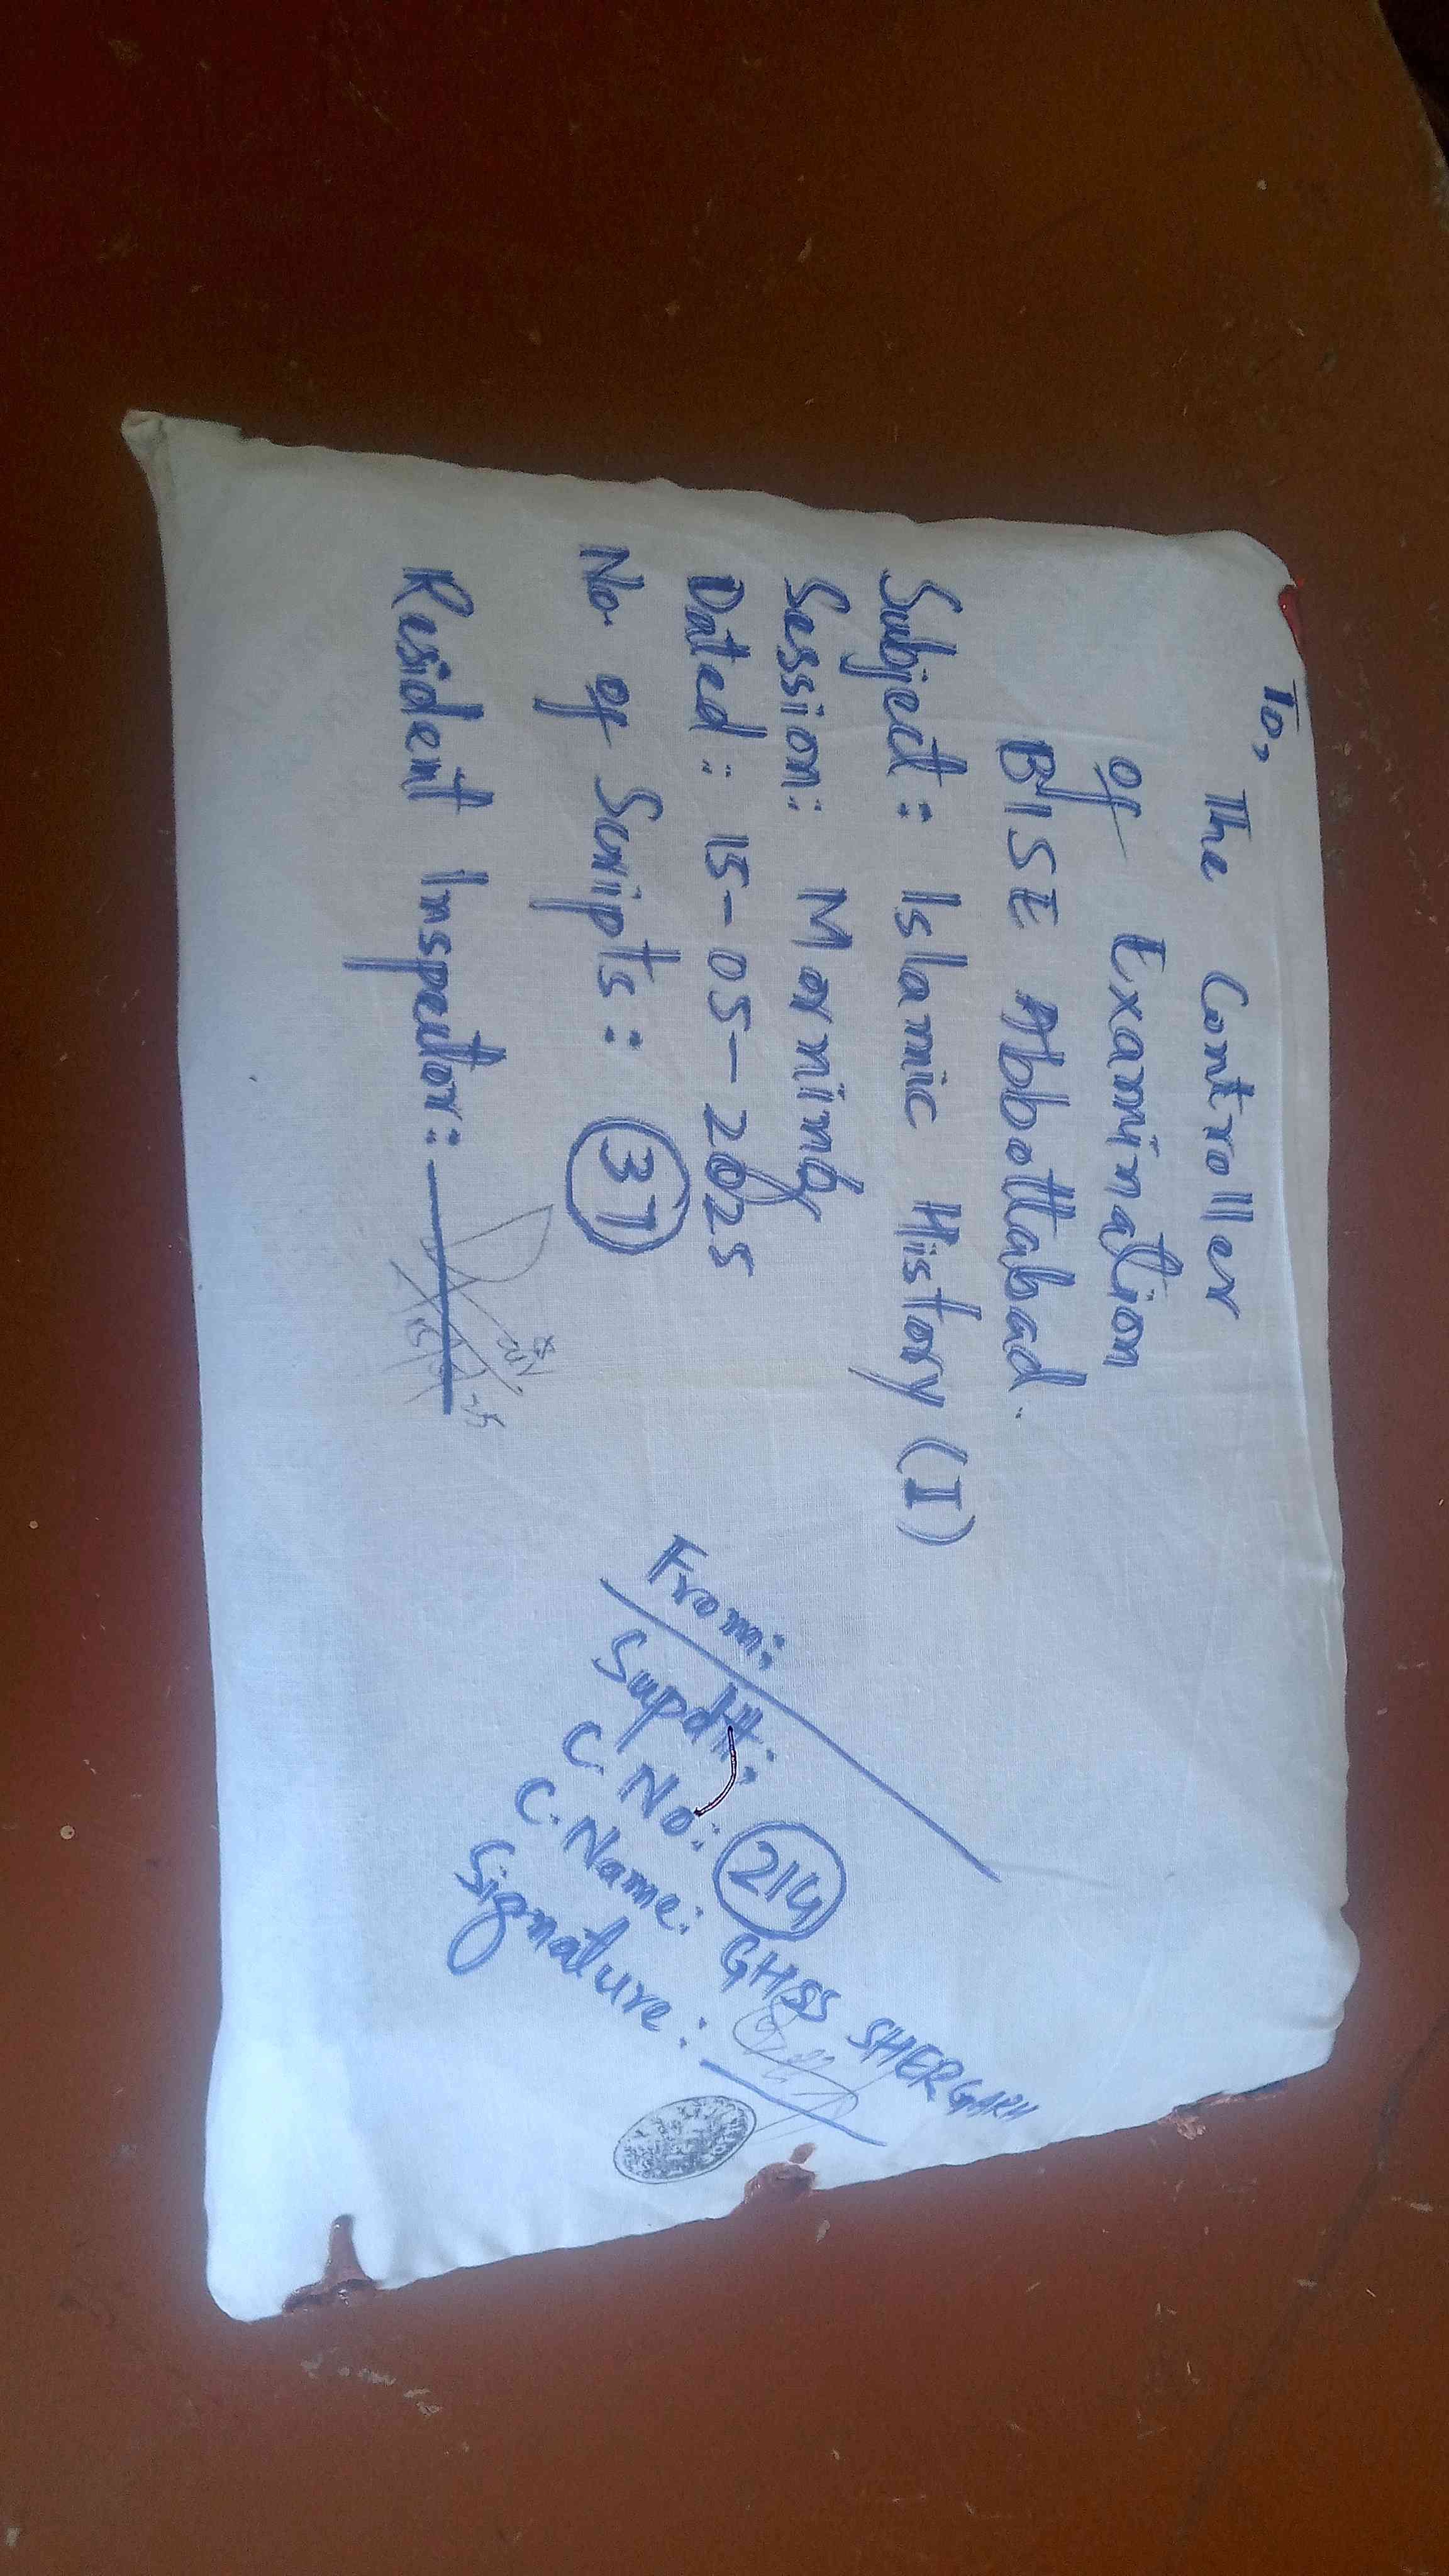 To,
The Controller
of Examination
BISE Abbottabad.
Subject: Islamic History (I)
Session: Morning
Dated: 15-05-2025
No. of Scripts: 37
Resident Inspector:
From:
Supdtt:
C. No.: 214
C. Name: GHSS SHERGARH
Signature: